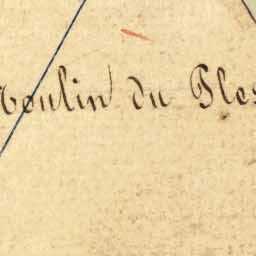 Moulin du Ples